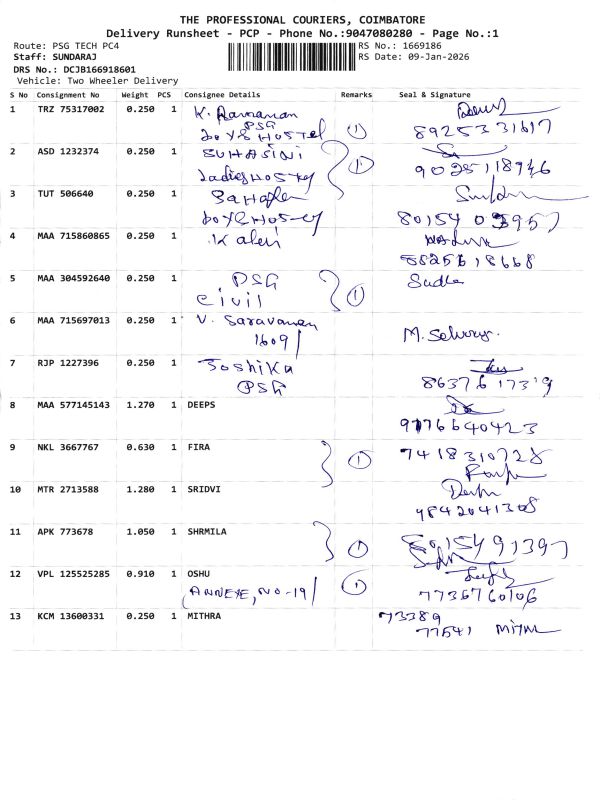 THE PROFESSIONAL COURIERS, COIMBATORE
Delivery Runsheet - PCP - Phone No.:9047080280 - Page No.:1
Route: PSG TECH PC4 RS No.: 1669186
Staff: SUNDARAJ RS Date: 09-Jan-2026
DRS No.: DCJB166918601
Vehicle: Two Wheeler Delivery
S No Consignment No Weight PCS Consignee Details Remarks Seal & Signature
1 TRZ 75317002 0.250 1 K.
PSG
Boys Hostel 1 8925331617
2 ASD 1232374 0.250 1 SUHASINI
Ladies Hostey 1 9025118946
3 TUT 506640 0.250 1
80154 03957
4 MAA 715860865 0.250 1
8825618668
5 MAA 304592640 0.250 1 PSG
civil 1
6 MAA 715697013 0.250 1 V. Saravanan
1609/ M. Selvary.
7 RJP 1227396 0.250 1 Joshika
PSG 8637617319
8 MAA 577145143 1.270 1 DEEPS
9176640423
9 NKL 3667767 0.630 1 FIRA 1 7418310728
10 MTR 2713588 1.280 1 SRIDVI
9842041308
11 APK 773678 1.050 1 SHRMILA 1 8015491397
12 VPL 125525285 0.910 1 OSHU 1
(ANNEXE, NO-19/ 7736760106
13 KCM 13600331 0.250 1 MITHRA 73389
77541